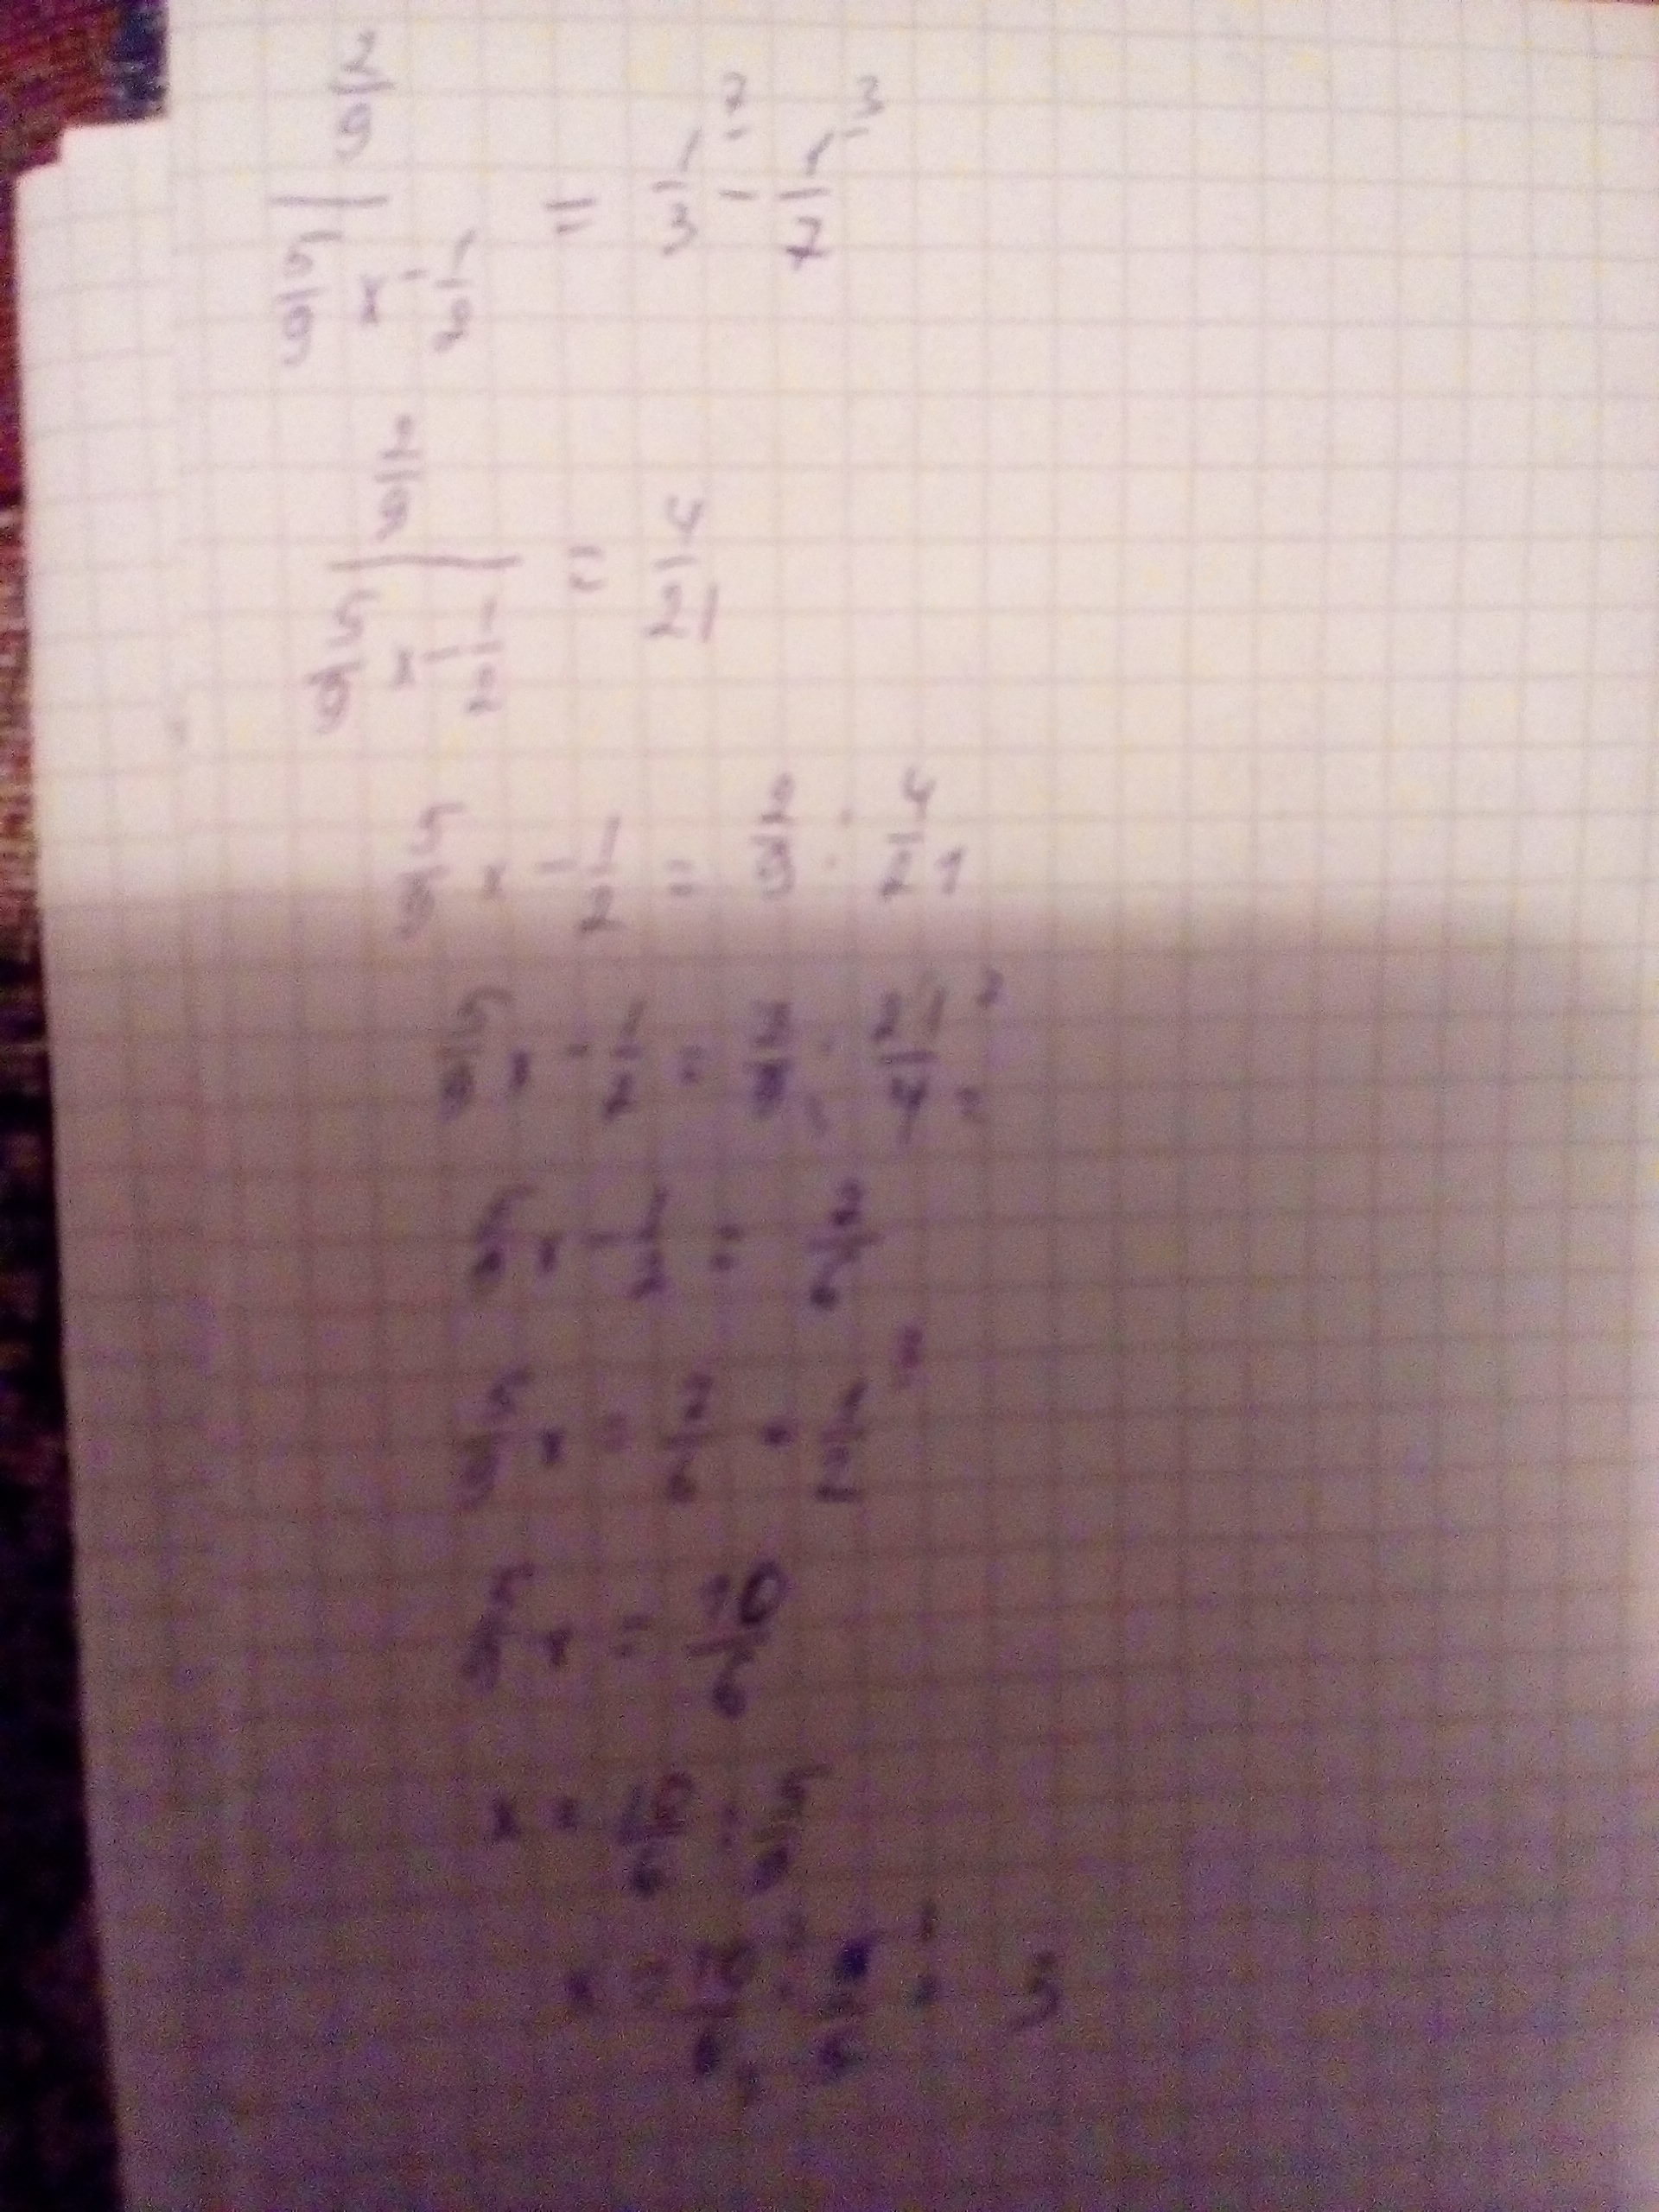 2/9 / (5/9 x - 1/2) = 1/3 ⁷ - 1/7 ³
2/9 / (5/9 x - 1/2) = 4/21
5/9 x - 1/2 = 2/9 : 4/21
5/9 x - 1/2 = 2/9 · 21/4 ⁷ ₂
5/9 x - 1/2 = 7/6
5/9 x = 7/6 + 1/2 ³
5/9 x = 10/6
x = 10/6 : 5/9
x = 10/6 · 9/5 = 3